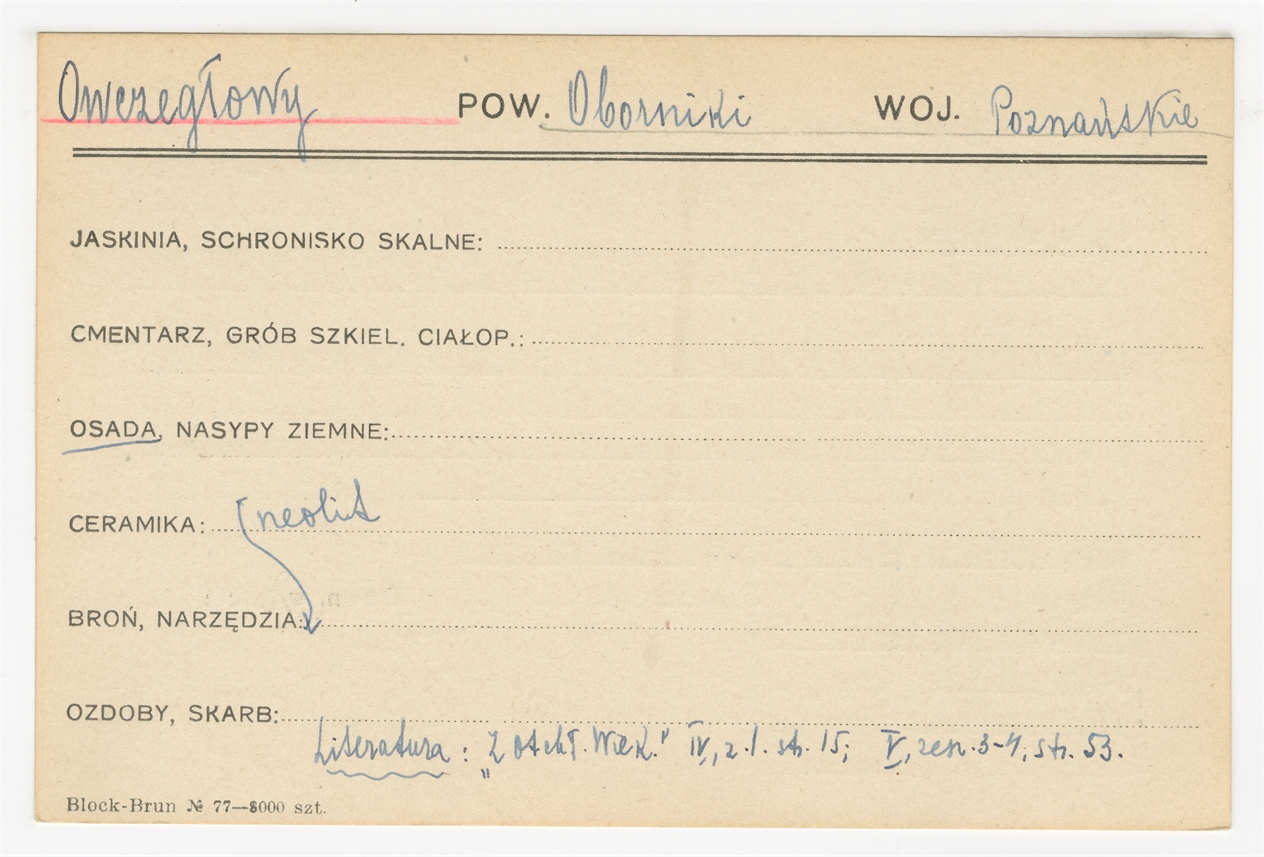 Owczegłowy POW. Oborniki WOJ. Poznańskie
JASKINIA, SCHRONISKO SKALNE:
CMENTARZ, GRÓB SZKIEL. CIAŁOP.:
OSADA, NASYPY ZIEMNE:
CERAMIKA: neolit
BROŃ, NARZĘDZIA:
OZDOBY, SKARB:
Literatura: „Z otchł. wiek." IV, z.1. str. 15; V, zesz. 3-4, str. 53.
Block-Brun № 77—8000 szt.